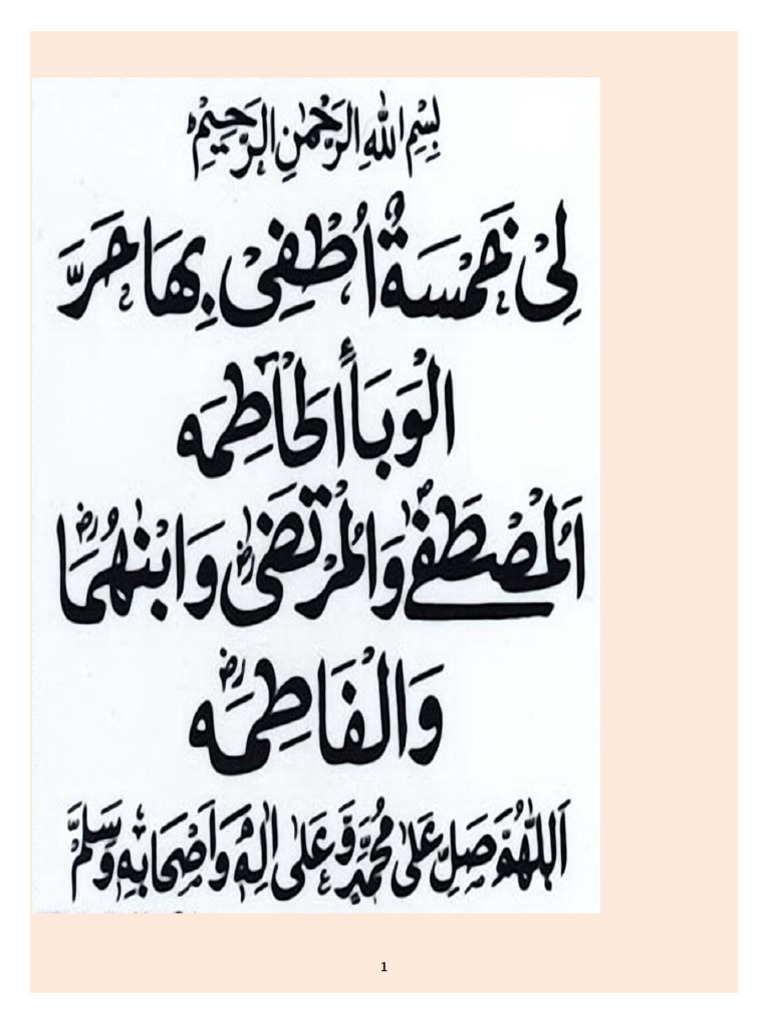 بِسْمِ اللهِ الرَّحْمٰنِ الرَّحِيْمِ ط
لِيْ خَمْسَةٌ اُطْفِيْ بِهَا حَرَّ
الْوَبَاءِ الْحَاطِمَه
اَلْمُصْطَفٰےؐ وَالْمُرْتَضٰىؓ وَابْنٰهُمَاؓ
وَالْفَاطِمَهؓ
اَللّٰهُمَّ صَلِّ عَلٰى مُحَمَّدٍ وَّعَلٰى اٰلِهٖ وَاَصْحَابِهٖ وَسَلِّمْ
1